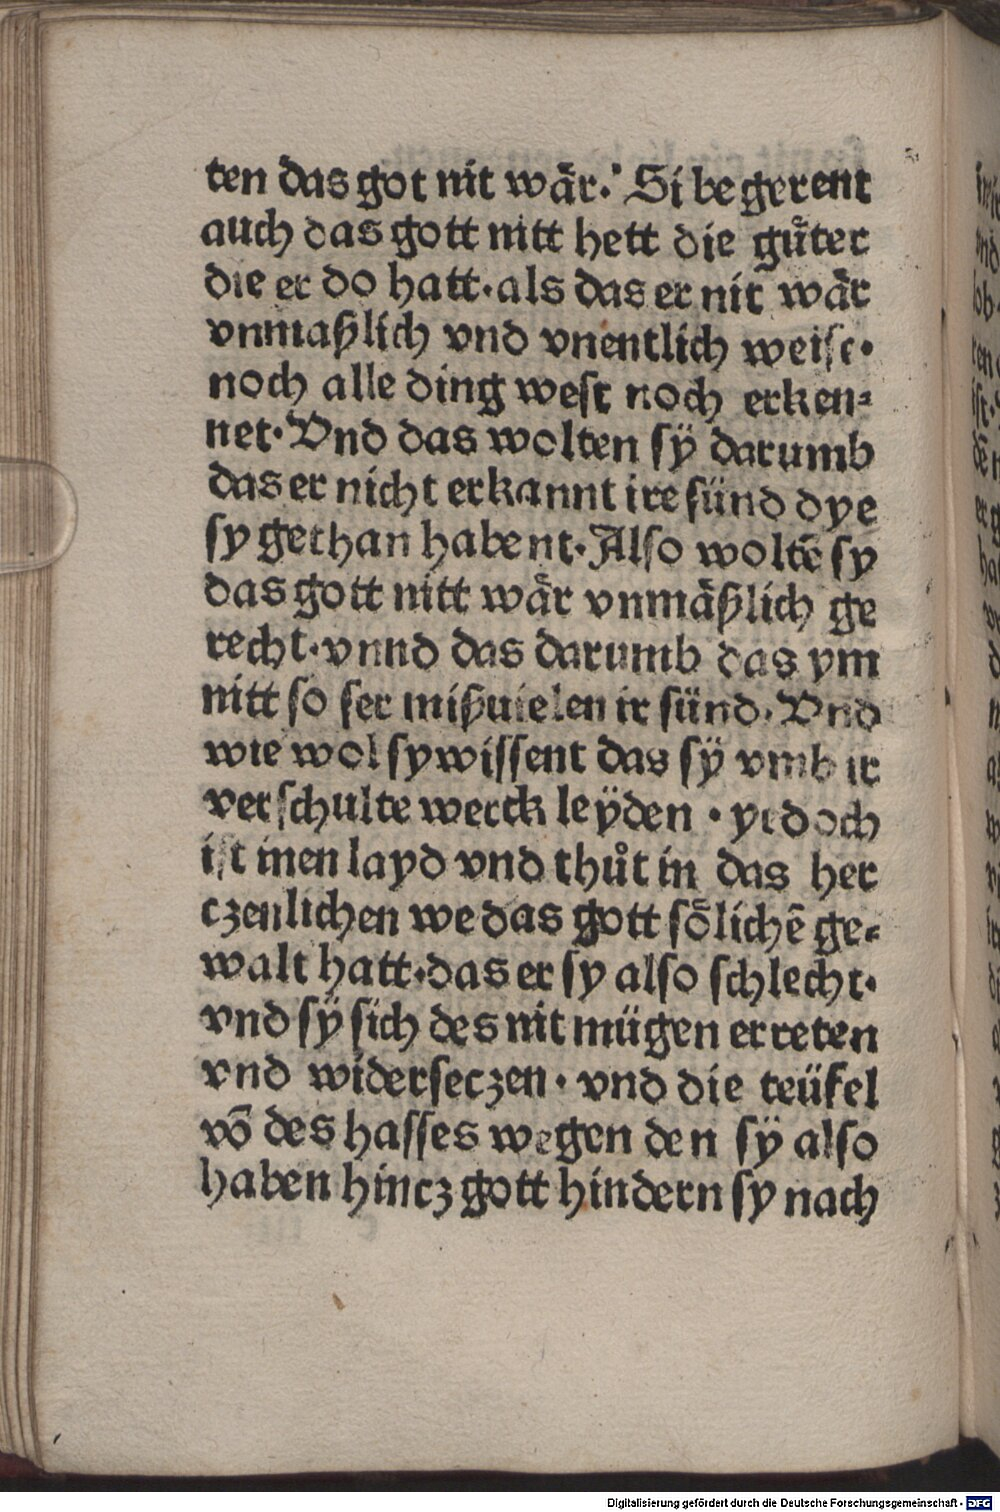 ten das got nit wär. Si begerent
auch das gott nitt hett die gůter
die er do hatt. als das er nit wär
vnmaßlich vnd vnentlich weise.
noch alle ding west noch erken⸗
net. Vnd das wolten sÿ darumb
das er nicht erkannt ire sünd dye
sy gethan habent. Also woltē sy
das gott nitt wär vnmäßlich ge
recht. vnnd das darumb das ym
nitt so ser mißuielen ir sünd. Vnd
wie wol sy wissent das sÿ vmb ir
verschulte werck leÿden . yedoch
ist inen layd vnd thůt in das her
czenlichen we das gott sölichē ge⸗
walt hatt. das er sy also schlecht.
vnd sÿ sich des nit mügen erreten
vnd widerseczen. vnd die teüfel
vō des hasses wegen den sÿ also
haben hincz gott hindern sy nach
Digitalisierung gefördert durch die Deutsche Forschungsgemeinschaft - DFG